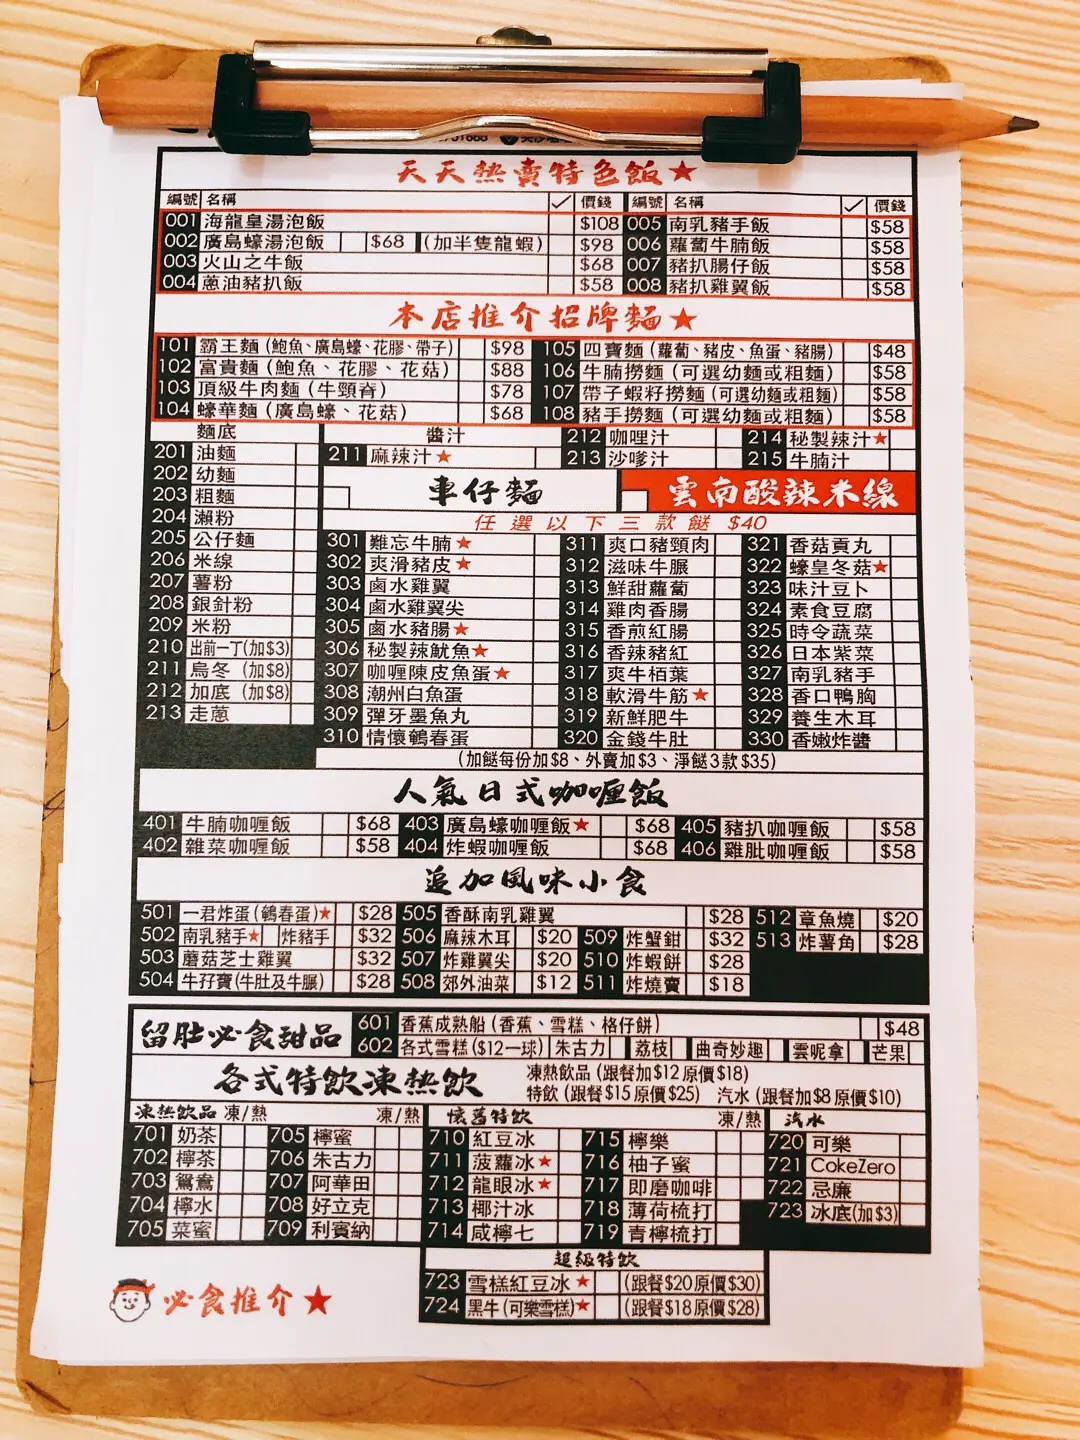 天天熱賣特色飯★
編號 名稱 ✓ 價錢 編號 名稱 ✓ 價錢
001 海龍皇湯泡飯 $108 005 南乳豬手飯 $58
002 廣島蠔湯泡飯 $68 (加半隻龍蝦) $98 006 蘿蔔牛腩飯 $58
003 火山之牛飯 $68 007 豬扒腸仔飯 $58
004 蔥油豬扒飯 $58 008 豬扒雞翼飯 $58
本店推介招牌麵★
101 霸王麵 (鮑魚、廣島蠔、花膠、帶子) $98 105 四寶麵 (蘿蔔、豬皮、魚蛋、豬腸) $48
102 富貴麵 (鮑魚、花膠、花菇) $88 106 牛腩撈麵 (可選幼麵或粗麵) $58
103 頂級牛肉麵 (牛頸脊) $78 107 帶子蝦籽撈麵 (可選幼麵或粗麵) $58
104 蠔華麵 (廣島蠔、花菇) $68 108 豬手撈麵 (可選幼麵或粗麵) $58
麵底
201 油麵
202 幼麵
203 粗麵
204 瀨粉
205 公仔麵
206 米線
207 薯粉
208 銀針粉
209 米粉
210 出前一丁(加$3)
211 烏冬 (加$8)
212 加底 (加$8)
213 走蔥
醬汁 212 咖哩汁 214 秘製辣汁★
211 麻辣汁★ 213 沙嗲汁 215 牛腩汁
車仔麵 雲南酸辣米線
任選以下三款餸 $40
301 難忘牛腩★ 311 爽口豬頸肉 321 香菇貢丸
302 爽滑豬皮★ 312 滋味牛脤 322 蠔皇冬菇★
303 鹵水雞翼 313 鮮甜蘿蔔 323 味汁豆卜
304 鹵水雞翼尖 314 雞肉香腸 324 素食豆腐
305 鹵水豬腸★ 315 香煎紅腸 325 時令蔬菜
306 秘製辣魷魚★ 316 香辣豬紅 326 日本紫菜
307 咖喱陳皮魚蛋★ 317 爽牛栢葉 327 南乳豬手
308 潮州白魚蛋 318 軟滑牛筋★ 328 香口鴨胸
309 彈牙墨魚丸 319 新鮮肥牛 329 養生木耳
310 情懷鵪春蛋 320 金錢牛肚 330 香嫩炸醬
(加餸每份加$8、外賣加$3、淨餸3款$35)
人氣日式咖喱飯
401 牛腩咖喱飯 $68 403 廣島蠔咖喱飯★ $68 405 豬扒咖喱飯 $58
402 雜菜咖喱飯 $58 404 炸蝦咖喱飯 $68 406 雞肶咖喱飯 $58
追加風味小食
501 一君炸蛋(鵪春蛋)★ $28 505 香酥南乳雞翼 $28 512 章魚燒 $20
502 南乳豬手★ 炸豬手 $32 506 麻辣木耳 $20 509 炸蟹鉗 $32 513 炸薯角 $28
503 蘑菇芝士雞翼 $32 507 炸雞翼尖 $20 510 炸蝦餅 $28
504 牛孖寶(牛肚及牛脤) $28 508 郊外油菜 $12 511 炸燒賣 $18
留肚必食甜品
601 香蕉成熟船 (香蕉、雪糕、格仔餅) $48
602 各式雪糕 ($12一球) 朱古力 荔枝 曲奇妙趣 雲呢拿 芒果
各式特飲凍熱飲
凍熱飲品 (跟餐加$12原價$18)
特飲 (跟餐$15原價$25) 汽水 (跟餐加$8原價$10)
凍熱飲品 凍/熱 凍/熱 懷舊特飲 凍/熱 汽水
701 奶茶 705 檸蜜 710 紅豆冰 715 檸樂 720 可樂
702 檸茶 706 朱古力 711 菠蘿冰★ 716 柚子蜜 721 CokeZero
703 鴛鴦 707 阿華田 712 龍眼冰★ 717 即磨咖啡 722 忌廉
704 檸水 708 好立克 713 椰汁冰 718 薄荷梳打 723 冰底(加$3)
705 菜蜜 709 利賓納 714 咸檸七 719 青檸梳打
超級特飲
723 雪糕紅豆冰★ (跟餐$20原價$30)
724 黑牛(可樂雪糕)★ (跟餐$18原價$28)
必食推介★